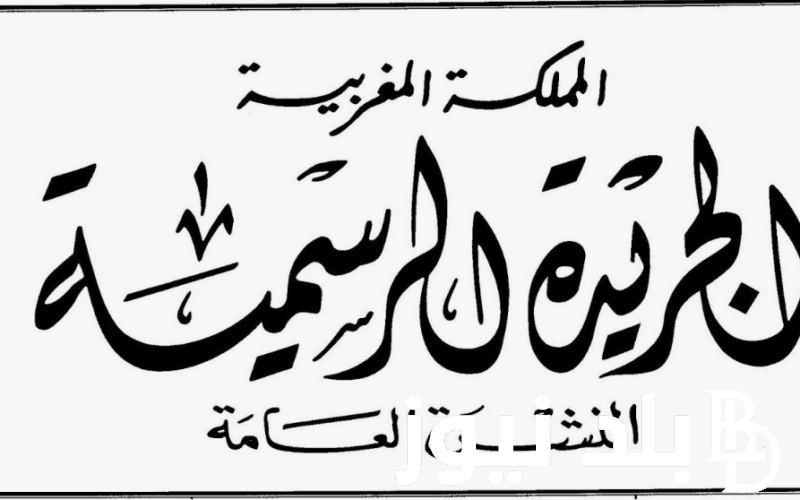 المملكة المغربية
الجريدة الرسمية
النشرة العامة
بلد نيوز